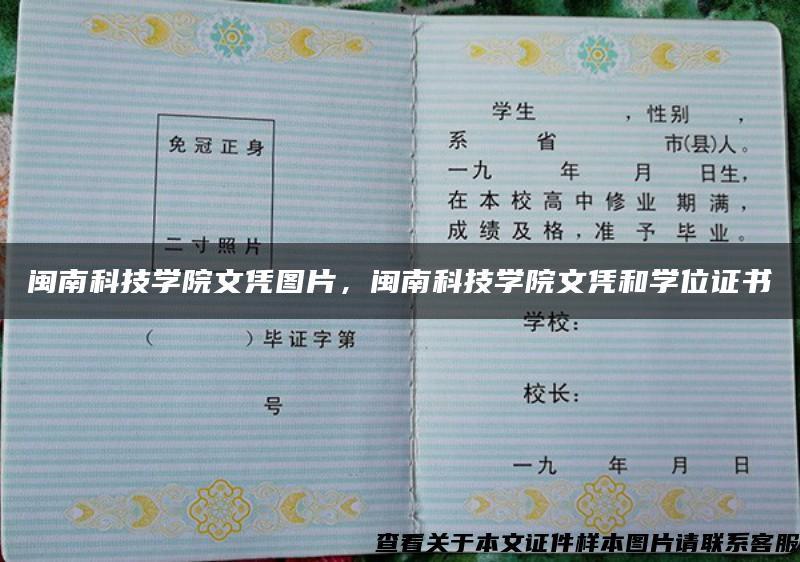 免冠正身
二寸照片
（ ）毕证字第
号
学生 ，性别 ，
系 省 市(县)人。
一九 年 月 日生，
在本校高中修业 期满，
成绩及格，准予毕业。
闽南科技学院文凭图片，闽南科技学院文凭和学位证书
学校：
校长：
一九 年 月 日
查看关于本文证件样本图片请联系客服